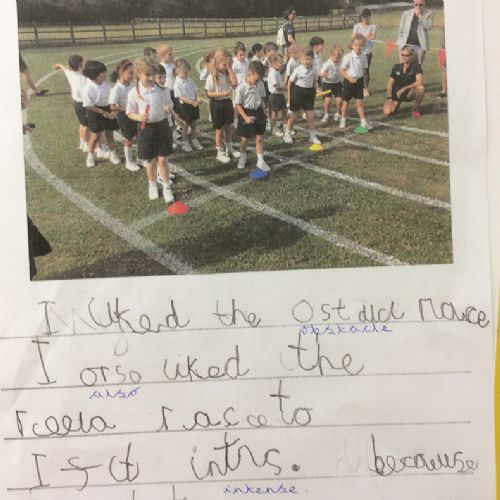 I liked the
obstacle
I orso liked the
also
reela race to
I felt intns. because
intense.